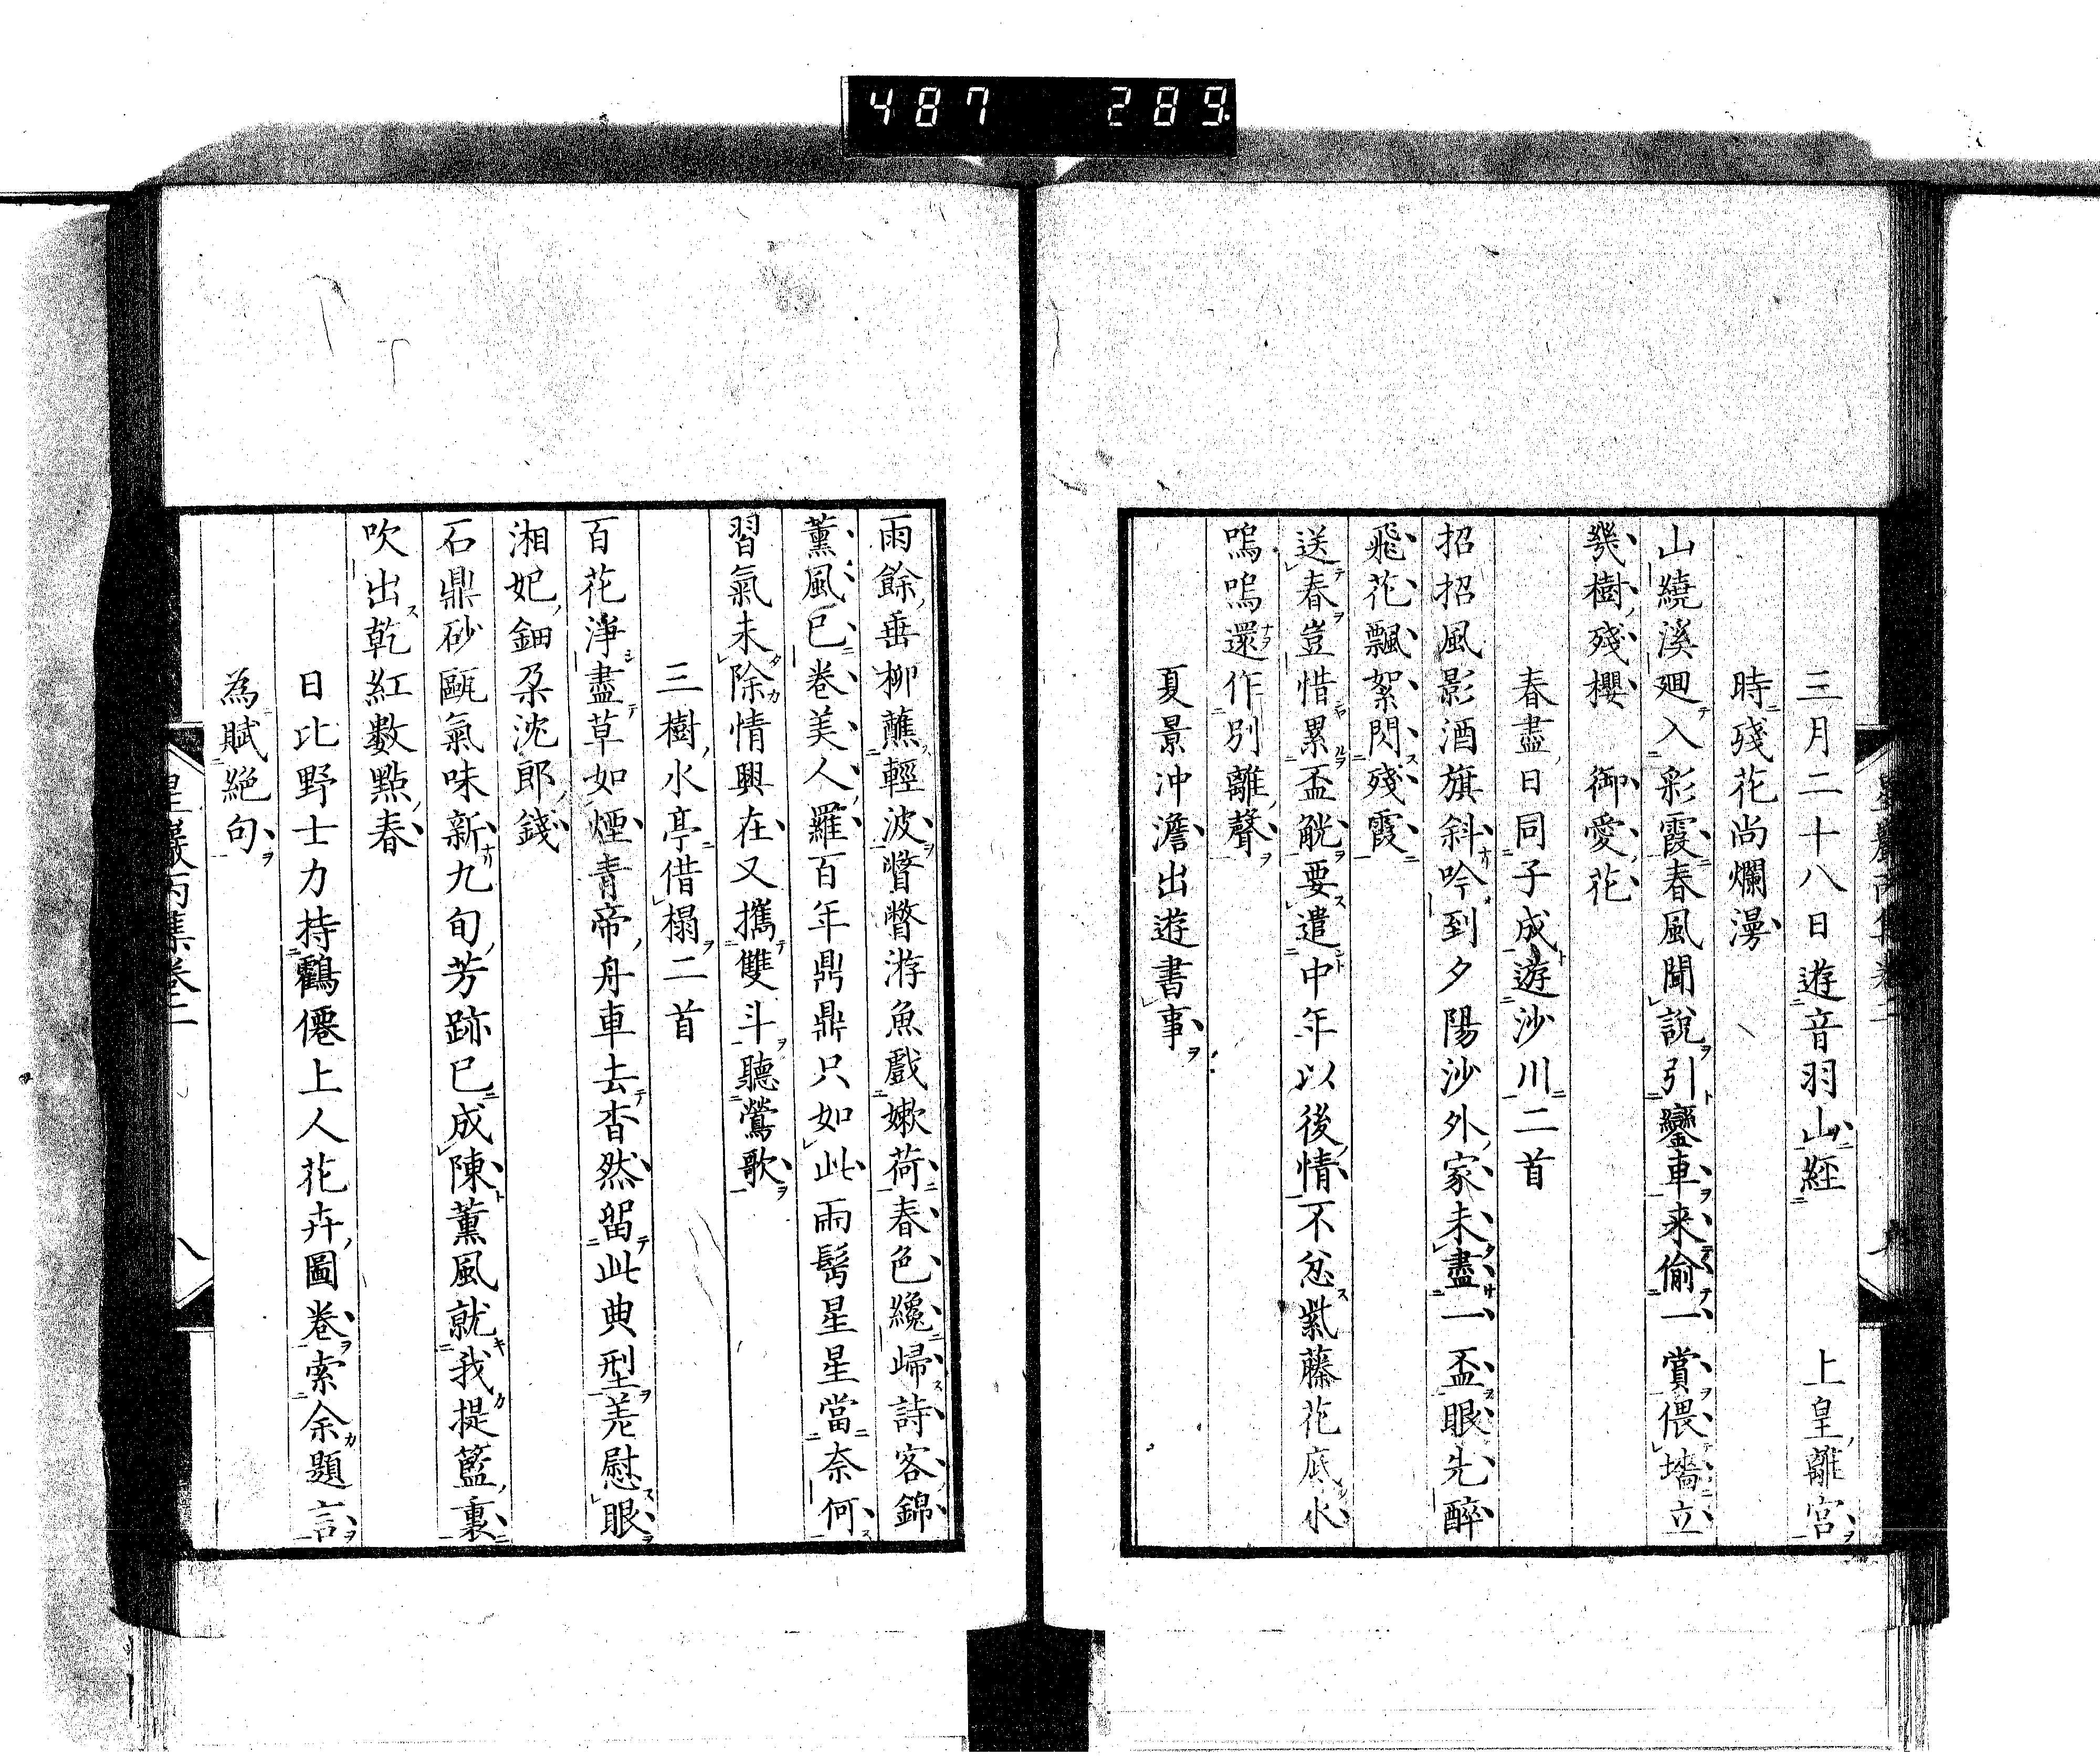 487 289
三月二十八日遊音羽山經　上皇離宮
時殘花尚爛漫
山繞溪廻入彩霞春風聞說引鑾車来偷一賞偎墻立
幾樹殘櫻　御愛花
春盡日同子成遊沙川二首
招招風影酒旗斜吟到夕陽沙外家未盡一盃眼先醉
飛花飄絮閃殘霞
送春豈惜累盃觥要遣中年以後情不忿紫藤花底水
嗚嗚還作別離聲
夏景冲澹出遊書事
雨餘垂柳蘸輕波瞥瞥游魚戲嫰荷春色纔歸詩客錦
薰風已卷美人羅百年鼎鼎只如此兩髩星星當奈何
習氣未除情興在又攜雙斗聽鶯歌
三樹水亭借榻二首
百花淨盡草如煙青帝舟車去杳然留此典型差慰眼
湘妃鈿朶沈郎錢
石鼎砂甌氣味新九旬芳跡已成陳薰風就我提籃裏
吹出乾紅數點春
日比野士力持鸛僊上人花卉圖卷索余題言
為賦絕句
八